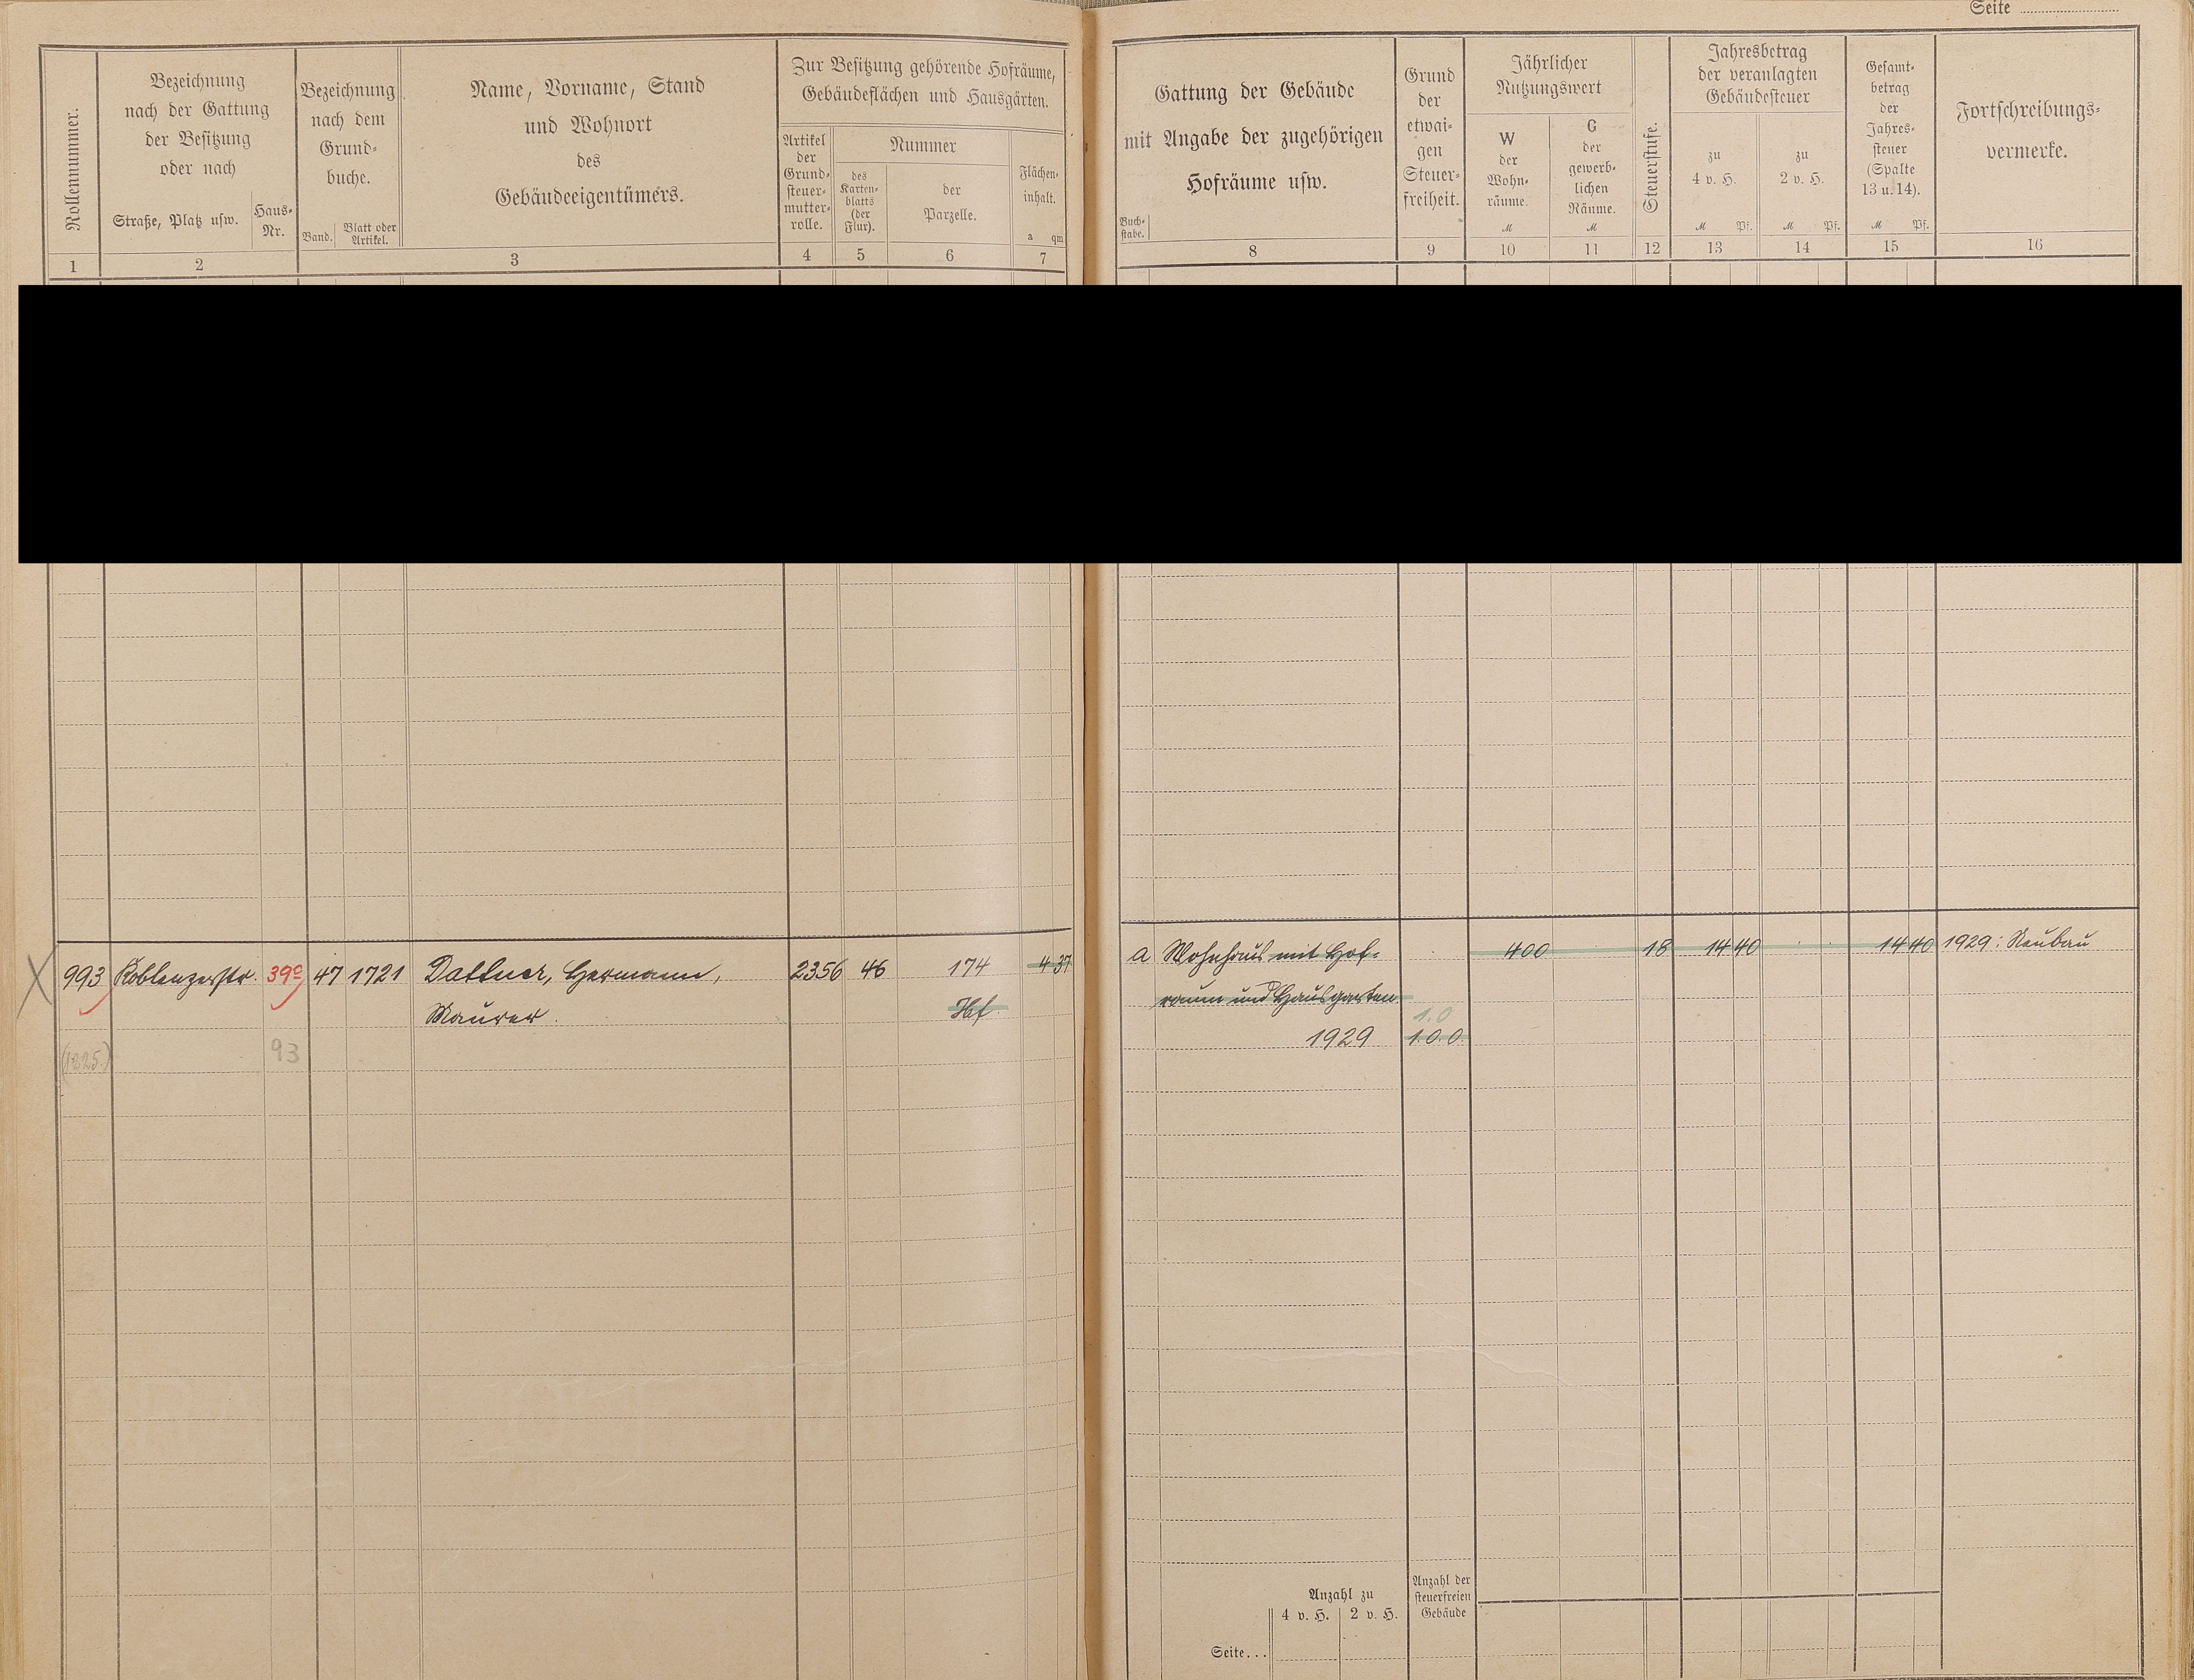 Seite
Rollennummer.
Bezeichnung
nach der Gattung
der Besitzung
oder nach
Straße, Platz usw.
Haus-
Nr.
Bezeichnung
nach dem
Grund-
buche.
Band.
Blatt oder
Artikel.
Name, Vorname, Stand
und Wohnort
des
Gebäudeeigentümers.
Zur Besitzung gehörende Hofräume,
Gebäudeflächen und Hausgärten.
Artikel
der
Grund-
steuer-
mutter-
rolle.
Nummer
des
Karten-
blatts
(der
Flur).
der
Parzelle.
Flächen-
inhalt.
a qm
1 2 3 4 5 6 7
Buch-
stabe.
Gattung der Gebäude
mit Angabe der zugehörigen
Hofräume usw.
Grund
der
etwai-
gen
Steuer-
freiheit.
Jährlicher
Nutzungswert
W
der
Wohn-
räume.
M
G
der
gewerb-
lichen
Räume.
M
Steuerstufe.
Jahresbetrag
der veranlagten
Gebäudesteuer
zu
4 v. H.
M Pf.
zu
2 v. H.
M Pf.
Gesamt-
betrag
der
Jahres-
steuer
(Spalte
13 u. 14).
M Pf.
Fortschreibungs-
vermerke.
8 9 10 11 12 13 14 15 16
993 Koblenzerstr. 39c 47 1721 Dattner, Hermann, 2356 46 174 4 37
Maurer.
Hbf.
(1225.) 93
a Wohnhaus mit Hof- 400 18 14 40 14 40 1929: Neubau
raum und Hausgarten
1.0
1929 1.0.0.
Anzahl zu
4 v. H. 2 v. H.
Anzahl der
steuerfreien
Gebäude
Seite...